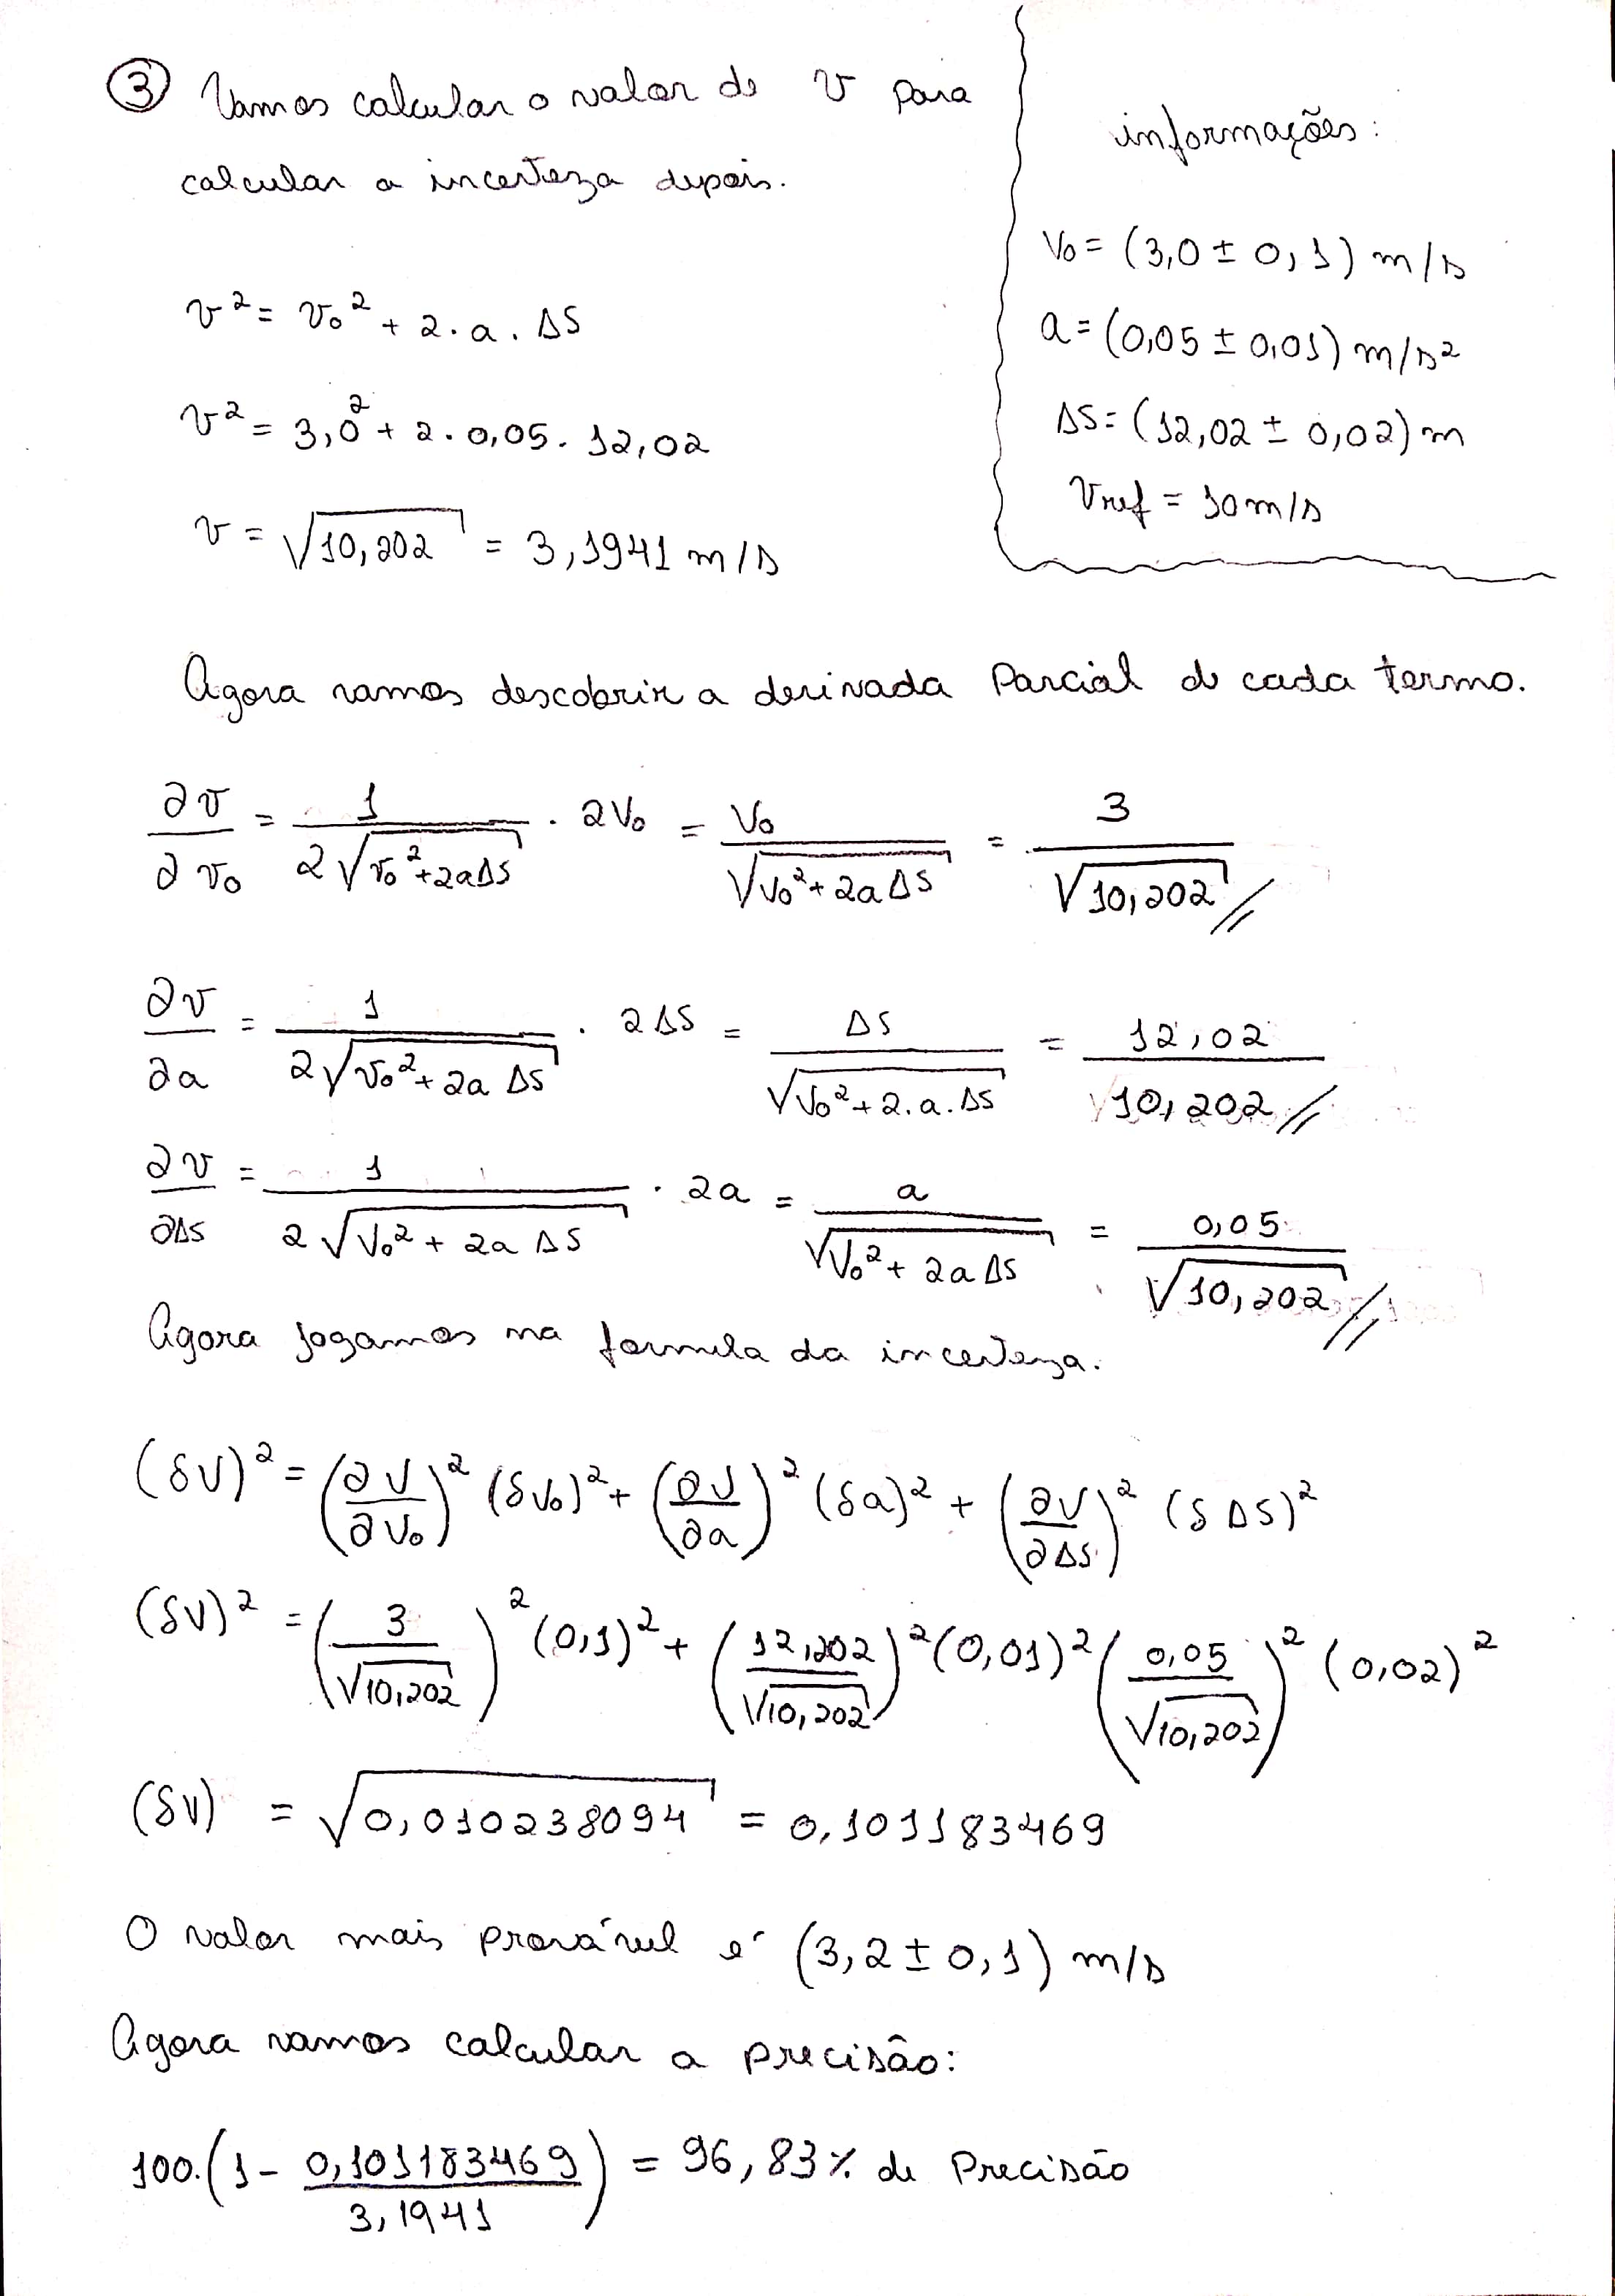 ③ Vamos calcular o valor de v para
calcular a incerteza depois.
v² = v₀² + 2.a.ΔS
v² = 3,0² + 2.0,05.12,02
v = √10,202 = 3,1941 m/s
informações:
V₀ = (3,0 ± 0,1) m/s
a = (0,05 ± 0,01) m/s²
ΔS = (12,02 ± 0,02) m
Vref = 10 m/s
Agora vamos descobrir a derivada parcial de cada termo.
∂v/∂v₀ = 1/(2√(v₀²+2aΔS)) . 2V₀ = V₀/√(V₀²+2aΔS) = 3/√10,202 //
∂v/∂a = 1/(2√(v₀²+2aΔS)) . 2ΔS = ΔS/√(V₀²+2.a.ΔS) = 12,02/√10,202 //
∂v/∂ΔS = 1/(2√(V₀²+2aΔS)) . 2a = a/√(V₀²+2aΔS) = 0,05/√10,202 //
Agora jogamos na formula da incerteza.
(δV)² = (∂V/∂V₀)² (δV₀)² + (∂V/∂a)² (δa)² + (∂V/∂ΔS)² (δΔS)²
(δV)² = (3/√10,202)² (0,1)² + (12,202/√10,202)² (0,01)² (0,05/√10,202)² (0,02)²
(δV) = √0,010238094 = 0,101183469
O valor mais provável é (3,2 ± 0,1) m/s
Agora vamos calcular a precisão:
100.(1 - 0,101183469/3,1941) = 96,83% de Precisão